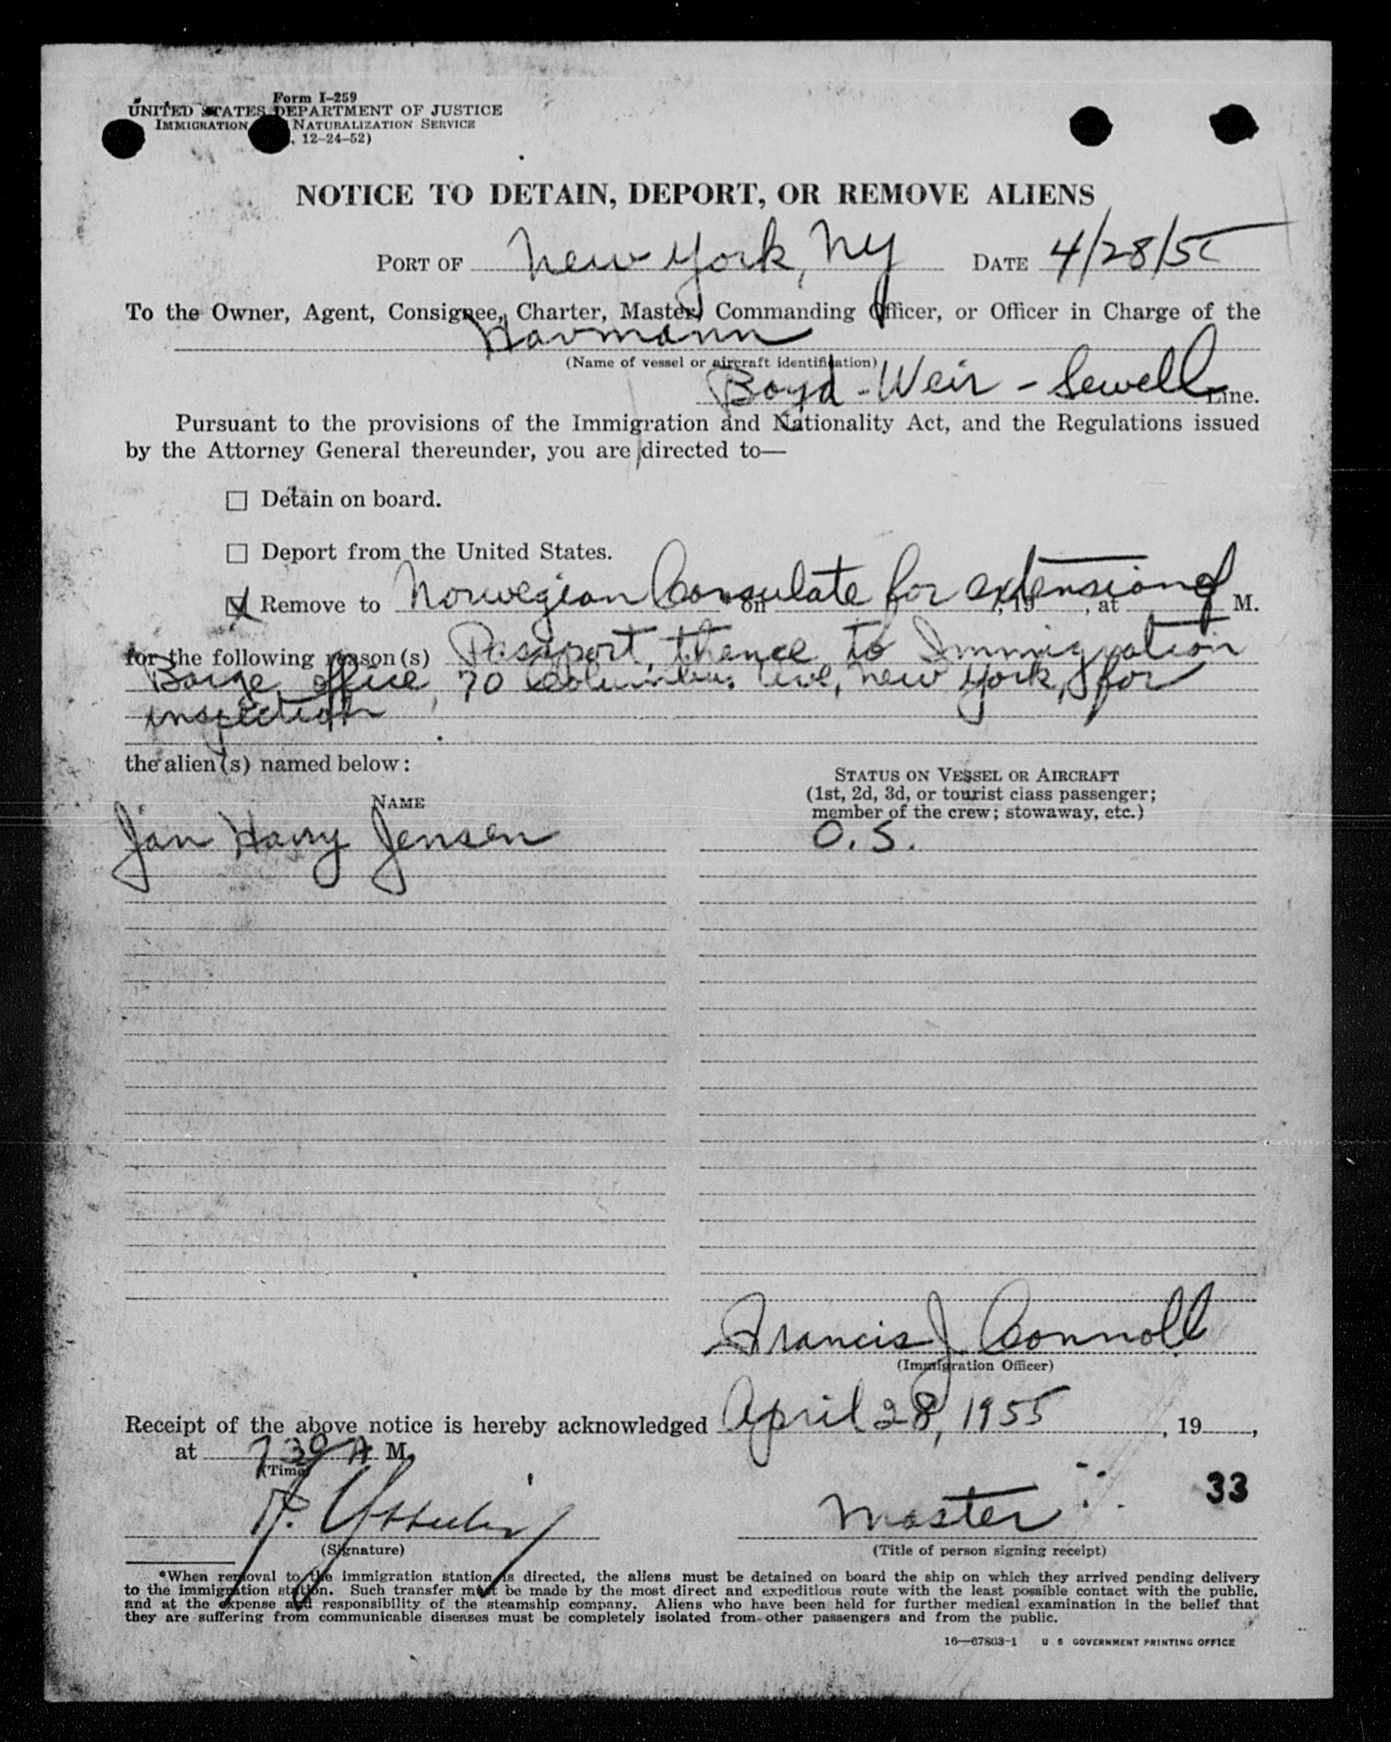 Form I-259
UNITED STATES DEPARTMENT OF JUSTICE
IMMIGRATION NATURALIZATION SERVICE
12-24-52)
NOTICE TO DETAIN, DEPORT, OR REMOVE ALIENS
PORT OF New York, NY DATE 4/28/55
To the Owner, Agent, Consignee, Charter, Master, Commanding Officer, or Officer in Charge of the
Havmann
(Name of vessel or aircraft identification)
Boyd-Weir-Sewell Line.
Pursuant to the provisions of the Immigration and Nationality Act, and the Regulations issued
by the Attorney General thereunder, you are directed to—
☐ Detain on board.
☐ Deport from the United States.
☒ Remove to Norwegian Consulate for extension of on , 19 , at M.
for the following reason(s) Passport, thence to Immigration
Barge office, 70 Columbus Ave, New York, for
inspection
the alien(s) named below:
STATUS ON VESSEL OR AIRCRAFT
(1st, 2d, 3d, or tourist class passenger;
member of the crew; stowaway, etc.)
NAME
Jan Harry Jensen O.S.
Francis J Connoll
(Immigration Officer)
Receipt of the above notice is hereby acknowledged April 28, 1955, 19 ,
at 730 A M.
(Time)
33
Master
(Signature) (Title of person signing receipt)
*When removal to the immigration station is directed, the aliens must be detained on board the ship on which they arrived pending delivery
to the immigration station. Such transfer must be made by the most direct and expeditious route with the least possible contact with the public,
and at the expense and responsibility of the steamship company. Aliens who have been held for further medical examination in the belief that
they are suffering from communicable diseases must be completely isolated from other passengers and from the public.
16—67803-1 U S GOVERNMENT PRINTING OFFICE